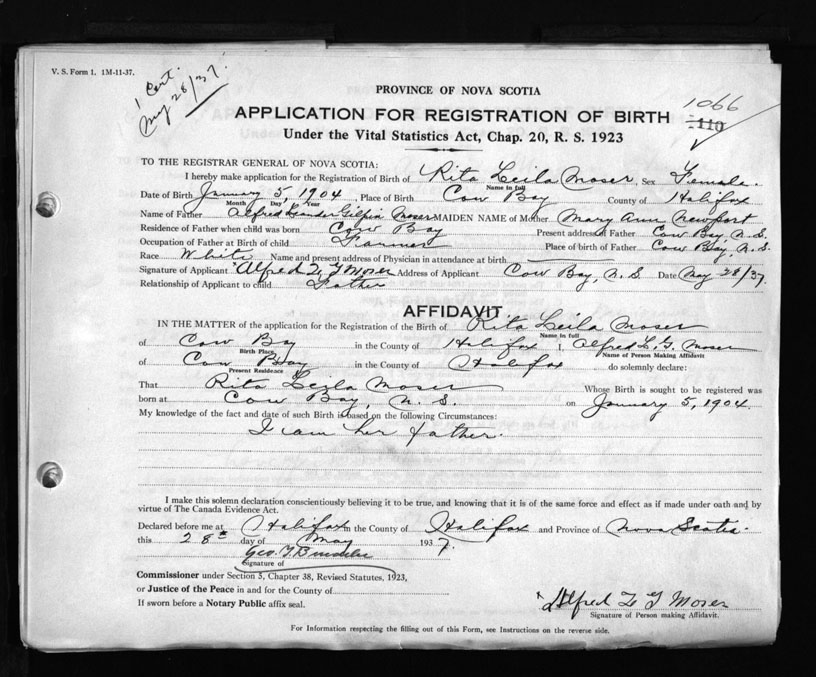 V. S. Form 1. 1M-11-37.
1 Cert.
May 28/37.
PROVINCE OF NOVA SCOTIA
1066
110
APPLICATION FOR REGISTRATION OF BIRTH
Under the Vital Statistics Act, Chap. 20, R. S. 1923
TO THE REGISTRAR GENERAL OF NOVA SCOTIA:
I hereby make application for the Registration of Birth of Rita Leila Moser, Sex Female.
Name in full
Date of Birth January 5, 1904, Place of Birth Cow Bay County of Halifax
Month Day, Year
Name of Father Alfred Leander Gilpin Moser MAIDEN NAME of Mother Mary Ann Newport
Residence of Father when child was born Cow Bay Present address of Father Cow Bay N.S.
Occupation of Father at Birth of child Farmer Place of birth of Father Cow Bay, N.S.
Race White Name and present address of Physician in attendance at birth
Signature of Applicant "Alfred L G Moser Address of Applicant Cow Bay, N.S Date May 28/37.
Relationship of Applicant to child Father
AFFIDAVIT
IN THE MATTER of the application for the Registration of the Birth of Rita Leila Moser
Name in full
of Cow Bay in the County of Halifax I, Alfred L. G. Moser
Birth Place Name of Person Making Affidavit
of Cow Bay in the County of Halifax do solemnly declare:
Present Residence
That Rita Leila Moser Whose Birth is sought to be registered was
born at Cow Bay, N.S. on January 5, 1904.
My knowledge of the fact and date of such Birth is based on the following Circumstances:
I am her father.
I make this solemn declaration conscientiously believing it to be true, and knowing that it is of the same force and effect as if made under oath and by
virtue of The Canada Evidence Act.
Declared before me at Halifax in the County of Halifax and Province of Nova Scotia.
this 28th day of May 1937.
Geo. T.
Signature of
Commissioner under Section 5, Chapter 38, Revised Statutes, 1923,
or Justice of the Peace in and for the County of
If sworn before a Notary Public affix seal.
"Alfred L G Moser
Signature of Person making Affidavit.
For Information respecting the filling out of this Form, see Instructions on the reverse side.